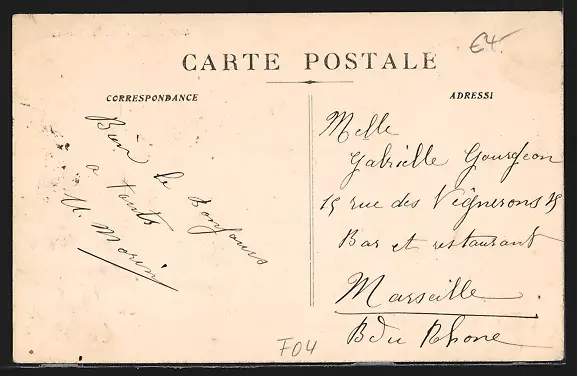 CARTE POSTALE
€4.-
CORRESPONDANCE
ADRESSE
Bien le bonjour
a toute
M. Morin
Melle
Gabrielle Gourgeon
15 rue des Vignerons 15
Bar et restaurant
Marseille
B du Rhone
F04